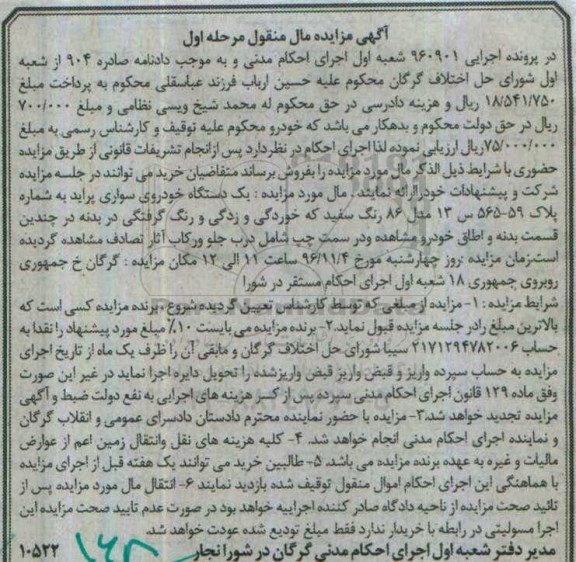 آگهی مزایده مال منقول مرحله اول
در پرونده اجرایی ۹۶۰۹۰۱ شعبه اول اجرای احکام مدنی و به موجب دادنامه صادره ۹۰۴ از شعبه
اول شورای حل اختلاف گرگان محکوم علیه حسین ارباب فرزند عباسقلی محکوم به پرداخت مبلغ
۱۸/۵۴۱/۷۵۰ ریال و هزینه دادرسی در حق محکوم له محمد شیخ ویسی نظامی و مبلغ ۷۰۰/۰۰۰
ریال در حق دولت محکوم و بدهکار می باشد که خودرو محکوم علیه توقیف و کارشناس رسمی به مبلغ
۷۵/۰۰۰/۰۰۰ریال ارزیابی نموده لذا اجرای احکام در نظر دارد پس ازانجام تشریفات قانونی از طریق مزایده
حضوری با شرایط ذیل الذکر مال مورد مزایده را بفروش برساند متقاضیان خرید می توانند در جلسه مزایده
شرکت و پیشنهادات خودراارائه نمایند. مال مورد مزایده : یک دستگاه خودروی سواری پراید به شماره
پلاک ۵۹-۵۶۵ س ۱۳ مدل ۸۶ رنگ سفید که خوردگی و زدگی و رنگ گرفتگی در بدنه در چندین
قسمت بدنه و اطاق خودرو مشاهده ودر سمت چپ شامل درب جلو ورکاب آثار تصادف مشاهده گردیده
است.زمان مزایده :روز چهارشنبه مورخ ۹۶/۱۱/۴ ساعت ۱۱ الی ۱۲ مکان مزایده : گرگان خ جمهوری
روبروی جمهوری ۱۸ شعبه اول اجرای احکام مستقر در شورا
شرایط مزایده : ۱- مزایده از مبلغی که توسط کارشناس تعیین گردیده شروع ،برنده مزایده کسی است که
بالاترین مبلغ رادر جلسه مزایده قبول نماید.۲- برنده مزایده می بایست ۱۰٪ مبلغ مورد پیشنهاد را نقدا به
حساب ۲۱۷۱۲۹۴۷۸۲۰۰۶ سیبا شورای حل اختلاف گرگان و مابقی آن را ظرف یک ماه از تاریخ اجرای
مزایده به حساب سپرده واریز و قبض واریز قبض واریزشده را تحویل دایره اجرا نماید در غیر این صورت
وفق ماده ۱۲۹ قانون اجرای احکام مدنی سپرده پس از کسر هزینه های اجرایی به نفع دولت ضبط و آگهی
مزایده تجدید خواهد شد.۳- مزایده با حضور نماینده محترم دادستان دادسرای عمومی و انقلاب گرگان
و نماینده اجرای احکام مدنی انجام خواهد شد. ۴- کلیه هزینه های نقل وانتقال زمین اعم از عوارض
مالیات و غیره به عهده برنده مزایده می باشد. ۵- طالبین خرید می توانند یک هفته قبل از اجرای مزایده
با هماهنگی این اجرای احکام اموال منقول توقیف شده بازدید نمایند ۶- انتقال مال مورد مزایده پس از
تائید صحت مزایده از ناحیه دادگاه صادر کننده اجراییه خواهد بود در صورت عدم تایید صحت مزایده این
اجرا مسولیتی در رابطه با خریدار ندارد فقط مبلغ تودیع شده عودت خواهد شد.
مدیر دفتر شعبه اول اجرای احکام مدنی گرگان در شورا نجار ۱۰۵۲۲